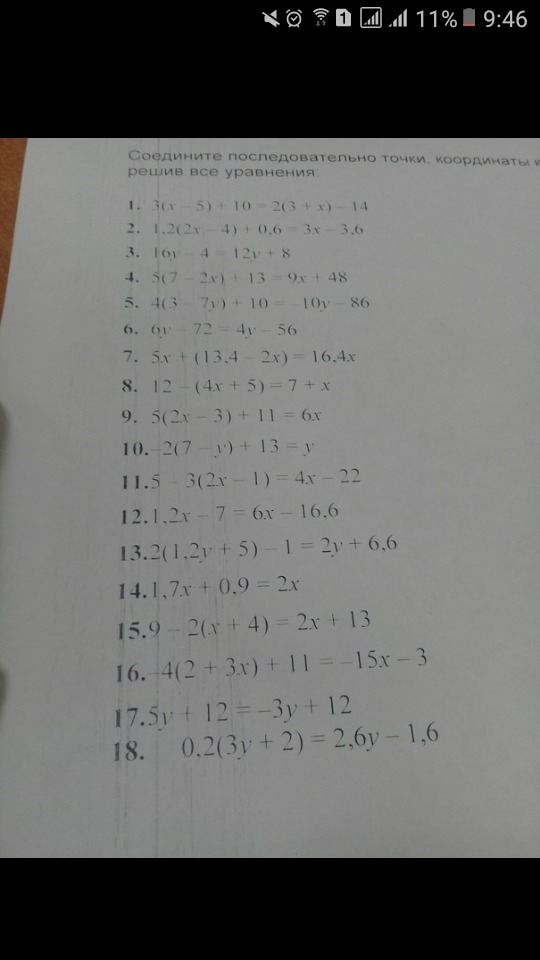 1 11% 9:46
Соедините последовательно точки, координаты к
решив все уравнения:
1. 3(x – 5) + 10 = 2(3 + x) – 14
2. 1,2(2x – 4) + 0,6 = 3x – 3,6
3. 16y – 4 = 12y + 8
4. 5(7 – 2x) + 13 = 9x + 48
5. 4(3 – 7y) + 10 = –10y – 86
6. 6y – 72 = 4y – 56
7. 5x + (13,4 – 2x) = 16,4x
8. 12 – (4x + 5) = 7 + x
9. 5(2x – 3) + 11 = 6x
10. –2(7 – y) + 13 = y
11. 5 – 3(2x – 1) = 4x – 22
12. 1,2x – 7 = 6x – 16,6
13. 2(1,2y + 5) – 1 = 2y + 6,6
14. 1,7x + 0,9 = 2x
15. 9 – 2(x + 4) = 2x + 13
16. –4(2 + 3x) + 11 = –15x – 3
17. 5y + 12 = –3y + 12
18. 0,2(3y + 2) = 2,6y – 1,6